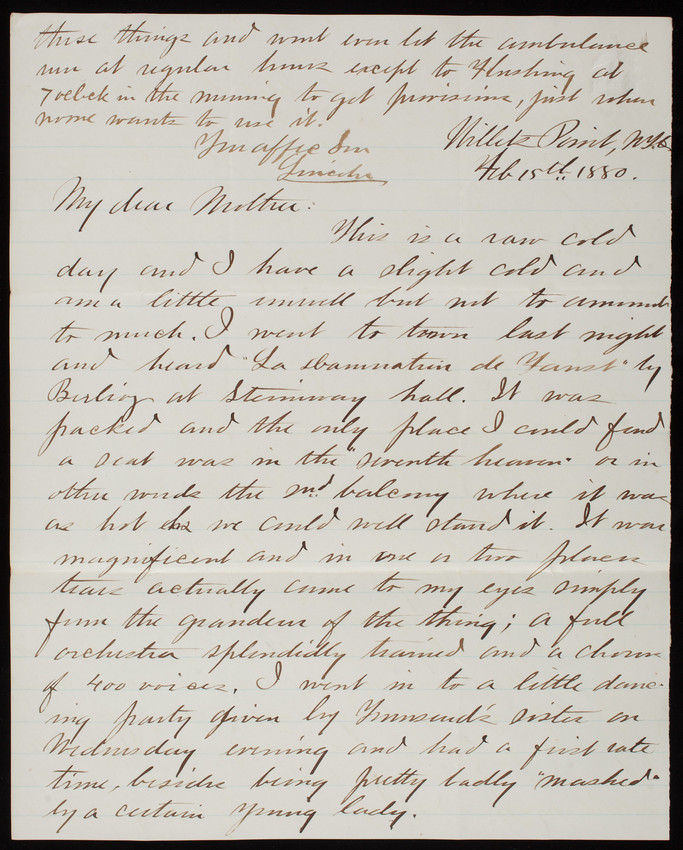 these things and wont even let the ambulance
run at regular hours except to Flushing at
7 oclock in the morning to get provisions, just when
no one wants to use it.
Your affec Son
Lincoln
Willets Point, N.Y.
Feb 15th. 1880.
My dear Mother:
This is a raw cold
day and I have a slight cold and
am a little unwell but not to amount
to much. I went to town last night
and heard "La Damnation de Faust" by
Berlioz at Steinway hall. It was
packed and the only place I could find
a seat was in the "seventh heaven" or in
other words the 2nd balcony where it was
as hot as we could well stand it. It was
magnificent and in one or two places
tears actually came to my eyes simply
from the grandeur of the thing; a full
orchestra splendidly trained and a chorus
of 400 voices. I went in to a little danc-
ing party given by Townsend's sister on
Wednesday evening and had a first rate
time, beside being pretty badly "mashed"
by a certain young lady.